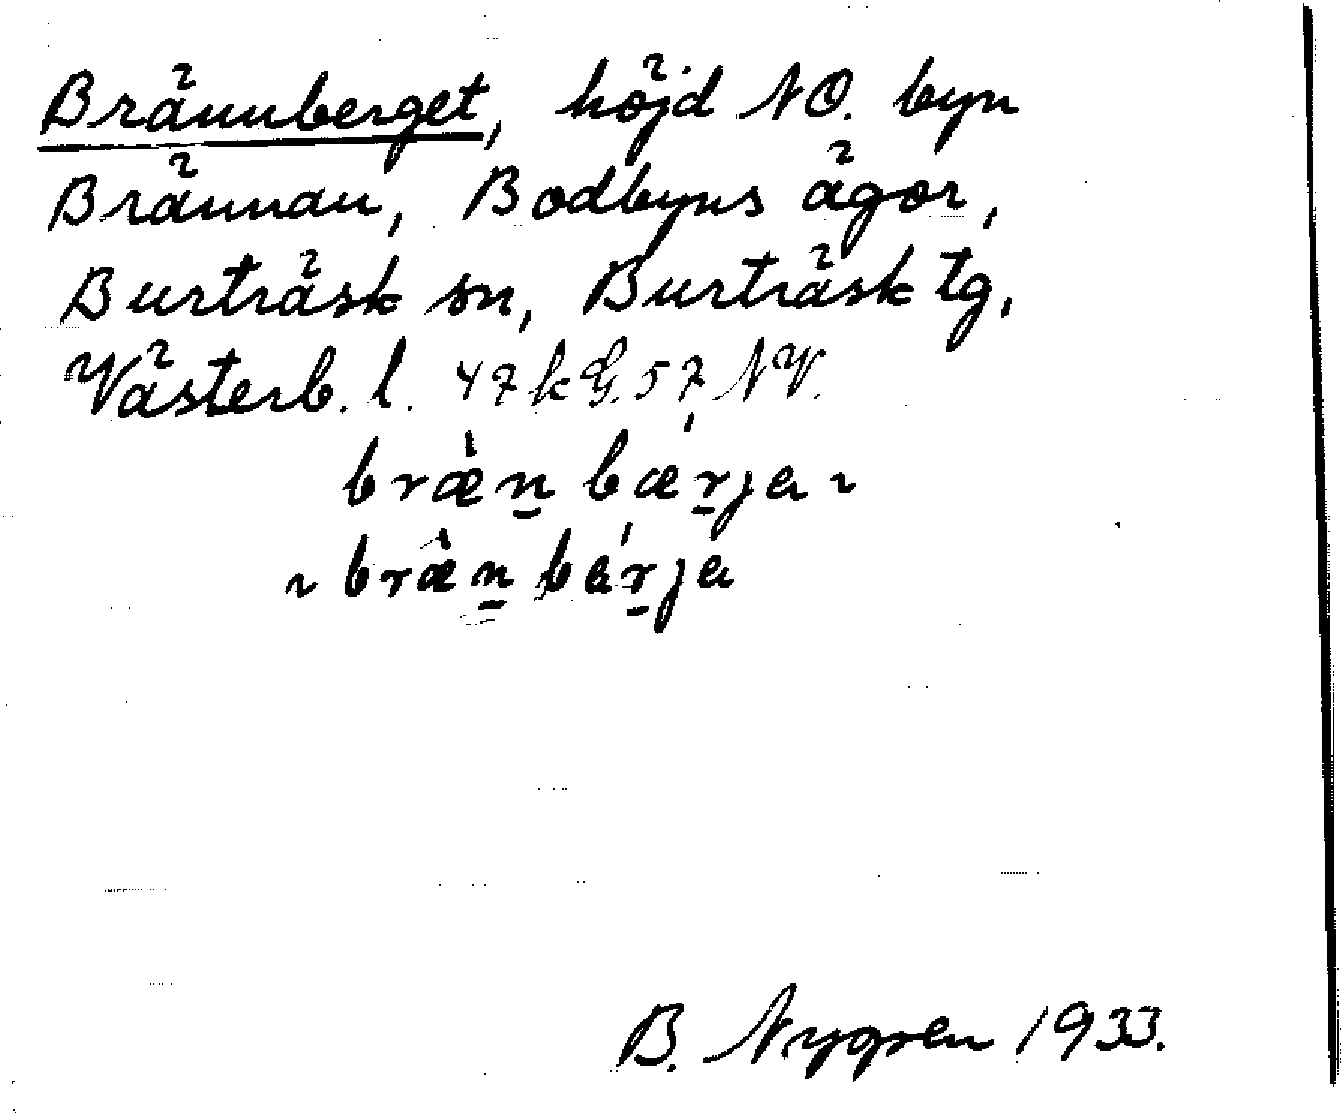 Brännberget, höjd NO. byn
Brännan, Bodbyns ägor,
Burträsk sn, Burträsk tg,
Västerb. l. 47kG.57NV.
bræ̀n̠ bǽr̠ja ~
~ bræ̂n̠ bár̠ja
B. Nygren 1933.